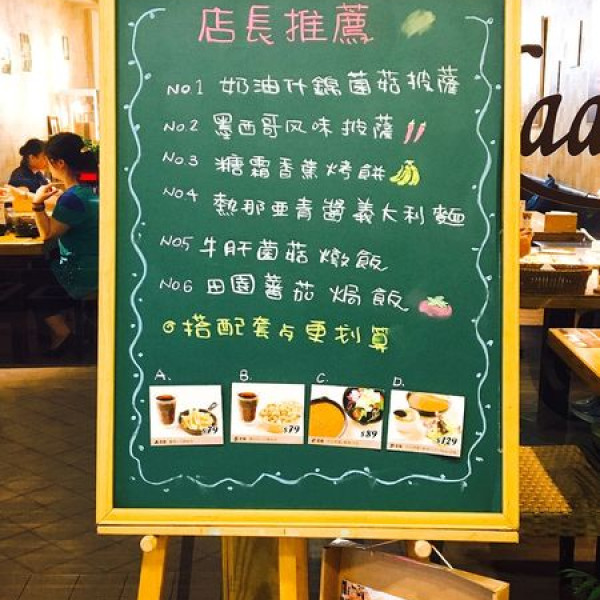 店長推薦
No.1 奶油什錦菌菇披薩
No.2 墨西哥风味披薩
No.3 糖霜香蕉烤餅
No4 熱那亞青醬義大利麵
No5 牛肝菌菇燉飯
No6 田園蕃茄焗飯
搭配套与更划算
A. B. C. D.
$79 $79 $89 $129